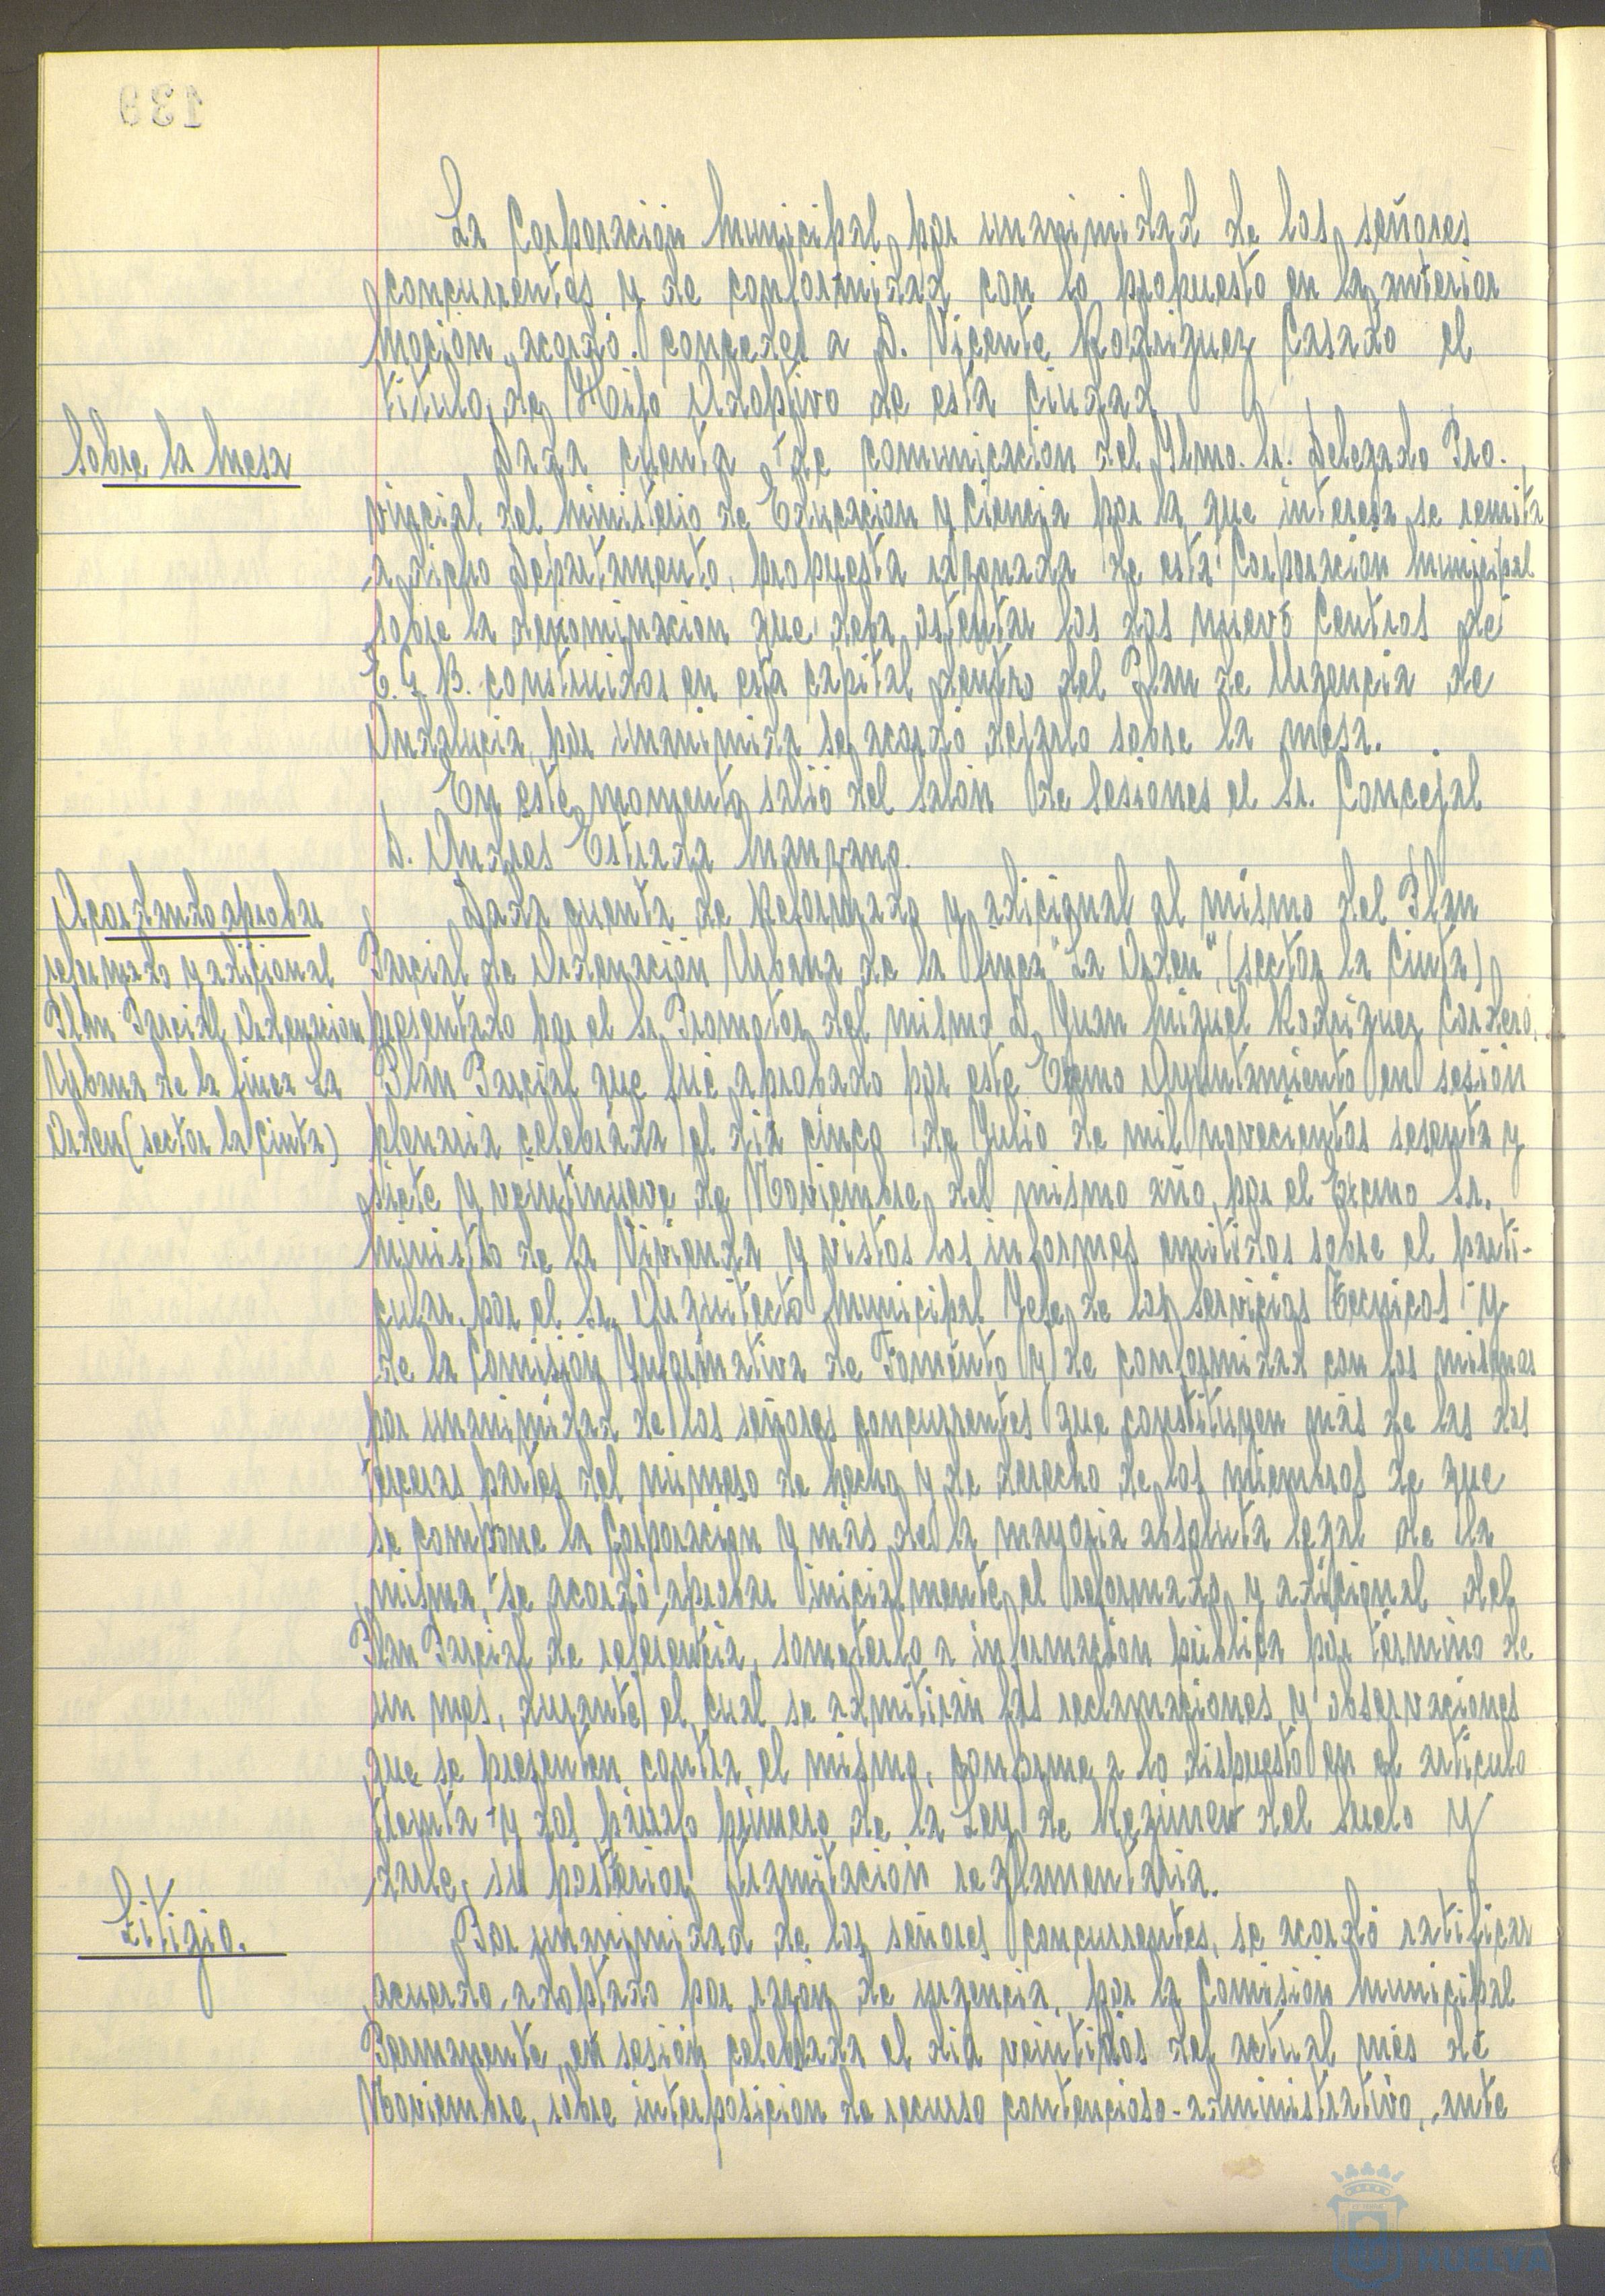 139
La Corporación Municipal, por unanimidad de los señores
concurrentes y de conformidad con lo propuesto en la anterior
moción, acordó. conceder a D. Vicente Rodriguez Casado el
titulo de Hijo Adoptivo de esta Ciudad
Sobre la mesa
Dada cuenta de comunicacion del Ylmo. Sr. Delegado Pro.
vincial del Ministerio de Educacion y Ciencia por la que interesa se remita
a dicho Departamento, propuesta razonada de esta Corporacion Municipal
sobre la denominacion que deba ostentar los dos nuevo Centros de
E. G. B. construidos en esta capital dentro del Plan de Urgencia de
Andalucia, por unanimida se acordó dejarlo sobre la mesa.
En este momento salió del Salón de Sesiones el Sr. Concejal
D. Andres Estrada Manzano.
Acordando aprobar
reformado y adicional
Plan Parcial Ordenacion
Urbana de la finca La
Orden (sector la Cinta)
Dada cuenta de Reformado y adicional al mismo del Plan
Parcial de Ordenación Urbana de la finca "La Orden", (sector la Cinta)
presentado por el Sr Promotor del mismo D. Juan Miguel Rodriguez Cordero,
Plan Parcial que fué aprobado por este Excmo Ayuntamiento en sesión
plenaria celebrada el dia cinco de Julio de mil novecientos sesenta y
siete y veintinueve de Noviembre, del mismo año, por el Excmo Sr.
Ministro de la Vivienda y vistos los informes emitidos sobre el parti-
cular. por el Sr. Arquitecto Municipal Jefe de los Servicios Tecnicos y
de la Comisión Informativa de Fomento y de conformidad con los mismos
por unanimidad de los señores concurrentes que constituyen más de las dos
terceras partes del número de hecho y de derecho de los miembros de que
se compone la Corporacion y más de la mayoria absoluta legal de la
misma, se acordó, aprobar inicialmente, el reformado y adicional del
Plan Parcial de referencia, someterlo a informacion pública por término de
un mes, durante el cual se admitirán las reclamaciones y observaciones
que se presenten contra el mismo, conforme a lo dispuesto en el articulo
treinta y dos párrafo primero de la Ley de Regimen del Suelo y
darle, su posterior tramitacion reglamentaria.
Litigio.
Por unanimidad de los señores concurrentes, se acordó ratificar
acuerdo adoptado por razón de urgencia, por la Comision Municipal
Permanente, en sesión celebrada el dia veintidós del actual mes de
Noviembre, sobre interposicion de recurso contencioso-administrativo, ante
HUELVA